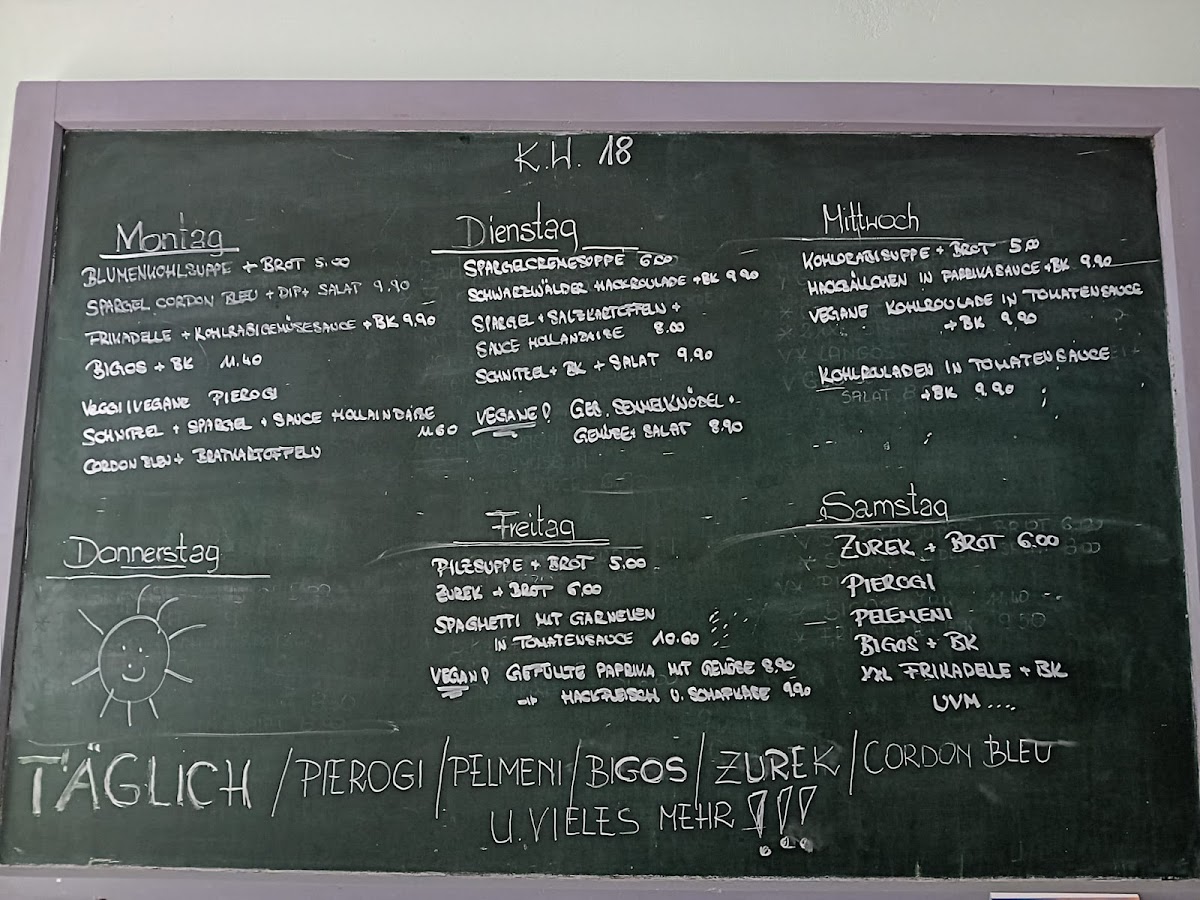 K.W. 18
Montag
BLUMENKOHLSUPPE + BROT 5.00
SPARGEL CORDON BLEU + DIP + SALAT 9.90
FRIKADELLE + KOHLRABIGEMÜSESAUCE + BK 9,90
BIGOS + BK 11.40
VEGGI/VEGANE PIEROGI
SCHNITZEL + SPARGEL + SAUCE HOLLAINDAISE
11.60
CORDON BLEU + BRATKARTOFFELN
Dienstag
SPARGELCREMESUPPE 6.00
SCHWARZWÄLDER HACKROULADE + BK 9.90
SPARGEL + SALZKARTOFFELN +
SAUCE HOLLANDAISE 8.00
SCHNITZEL + BK + SALAT 9,90
VEGANE! GEB. SEMMELKNÖDEL +
GEMÜSE + SALAT 8.90
Mittwoch
KOHLRABISUPPE + BROT 5.00
HACKBÄLLCHEN IN PAPRIKASAUCE + BK 9.90
VEGANE KOHLROULADE IN TOMATENSAUCE
+ BK 9.90
KOHLRULADEN IN TOMATENSAUCE
SALAT
+ BK 9.90
Donnerstag
Freitag
PILZSUPPE + BROT 5,00
ZUREK + BROT 6.00
SPAGHETTI MIT GARNELEN
IN TOMATENSAUCE 10.60
VEGAN! GEFÜLLTE PAPRIKA MIT GEMÜSE 8.90
HACKFLEISCH U. SCHAFKÄSE 9,90
Samstag
ZUREK + BROT 6.00
PIEROGI
PELEMENI
BIGOS + BK
XXL FRIKADELLE + BK
UVM ....
TÄGLICH / PIEROGI / PELMENI / BIGOS / ZUREK / CORDON BLEU
U. VIELES MEHR !!!